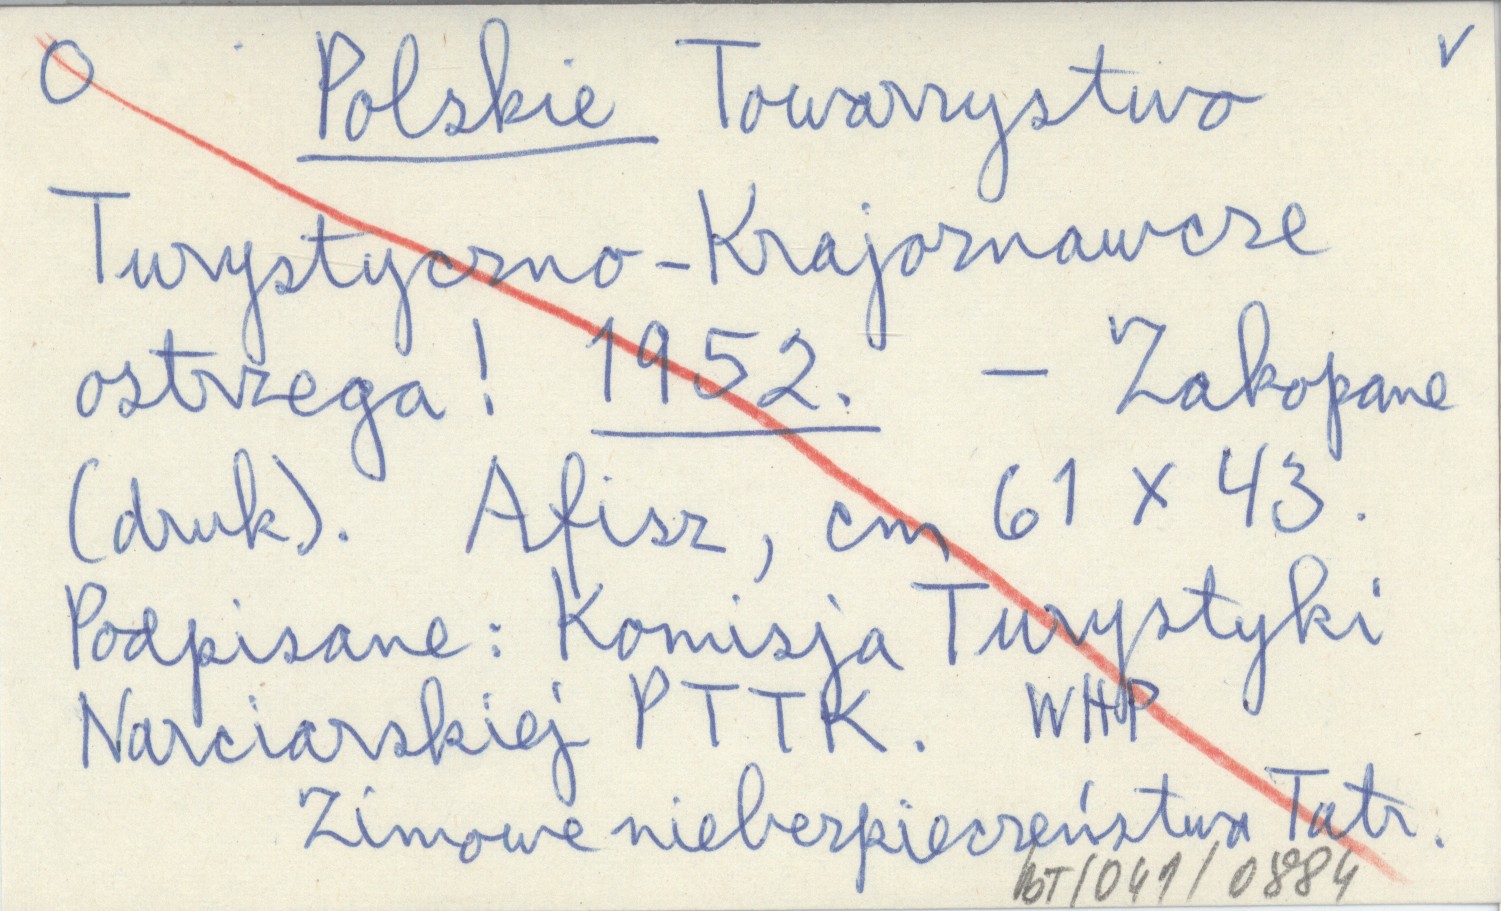 O Polskie Towarzystwo ✓
Turystyczno-Krajoznawcze
ostrzega! 1952. – Zakopane
(druk). Afisz, cm 61 x 43.
Podpisane: Komisja Turystyki
Narciarskiej PTTK. WHP
Zimowe niebezpieczeństwa Tatr.
bT/041/0884